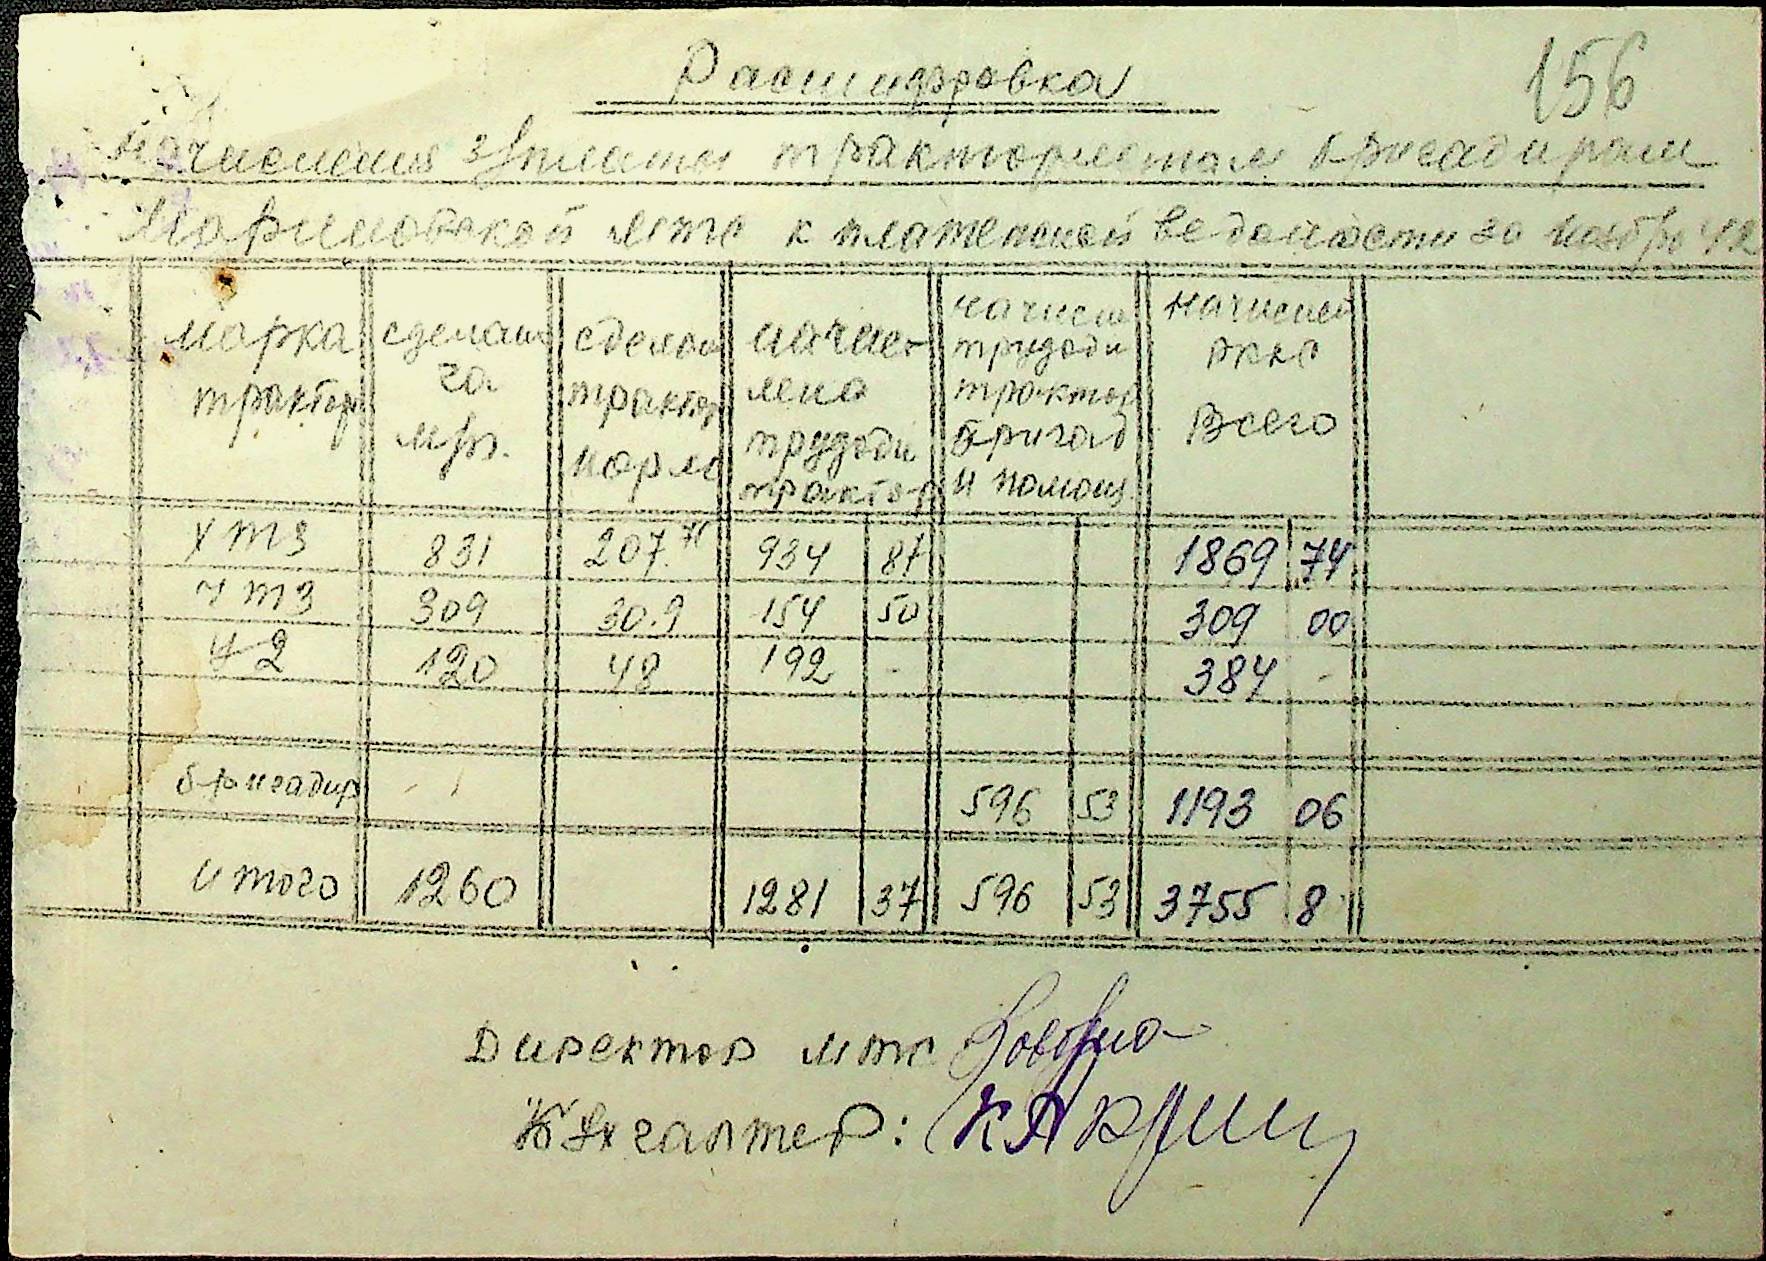 Расшифровка
156
начисления з/платы трактористам бригадирам
мтс к платежной ведомости за ноябрь 42
марка трактор
сделан га м/п.
сделан трактор норм
начислено трудодн трактор
начисл трудодн трактор бригад и помощ.
начислен
всего
ХТЗ 831 207. 934 87 1869 74
ЧТЗ 309 30.9 154 50 309 00
У2 120 48 192 - 384 -
бригадир 596 53 1193 06
итого 1260 1281 37 596 53 3755 8
Директор мтс
Бухгалтер: